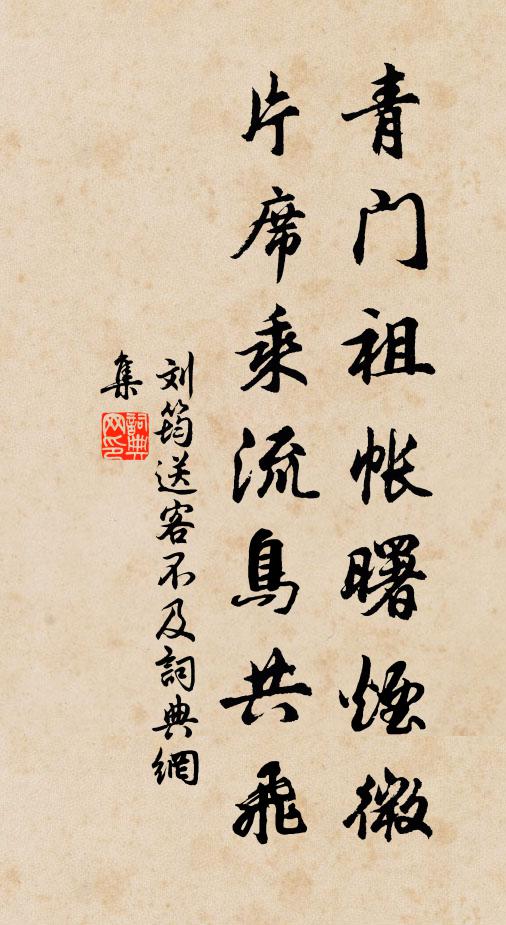 青门祖帐曙烟微
片席乘流鳥共飛
刘筠送客不及詞典網
集
詞典
网印